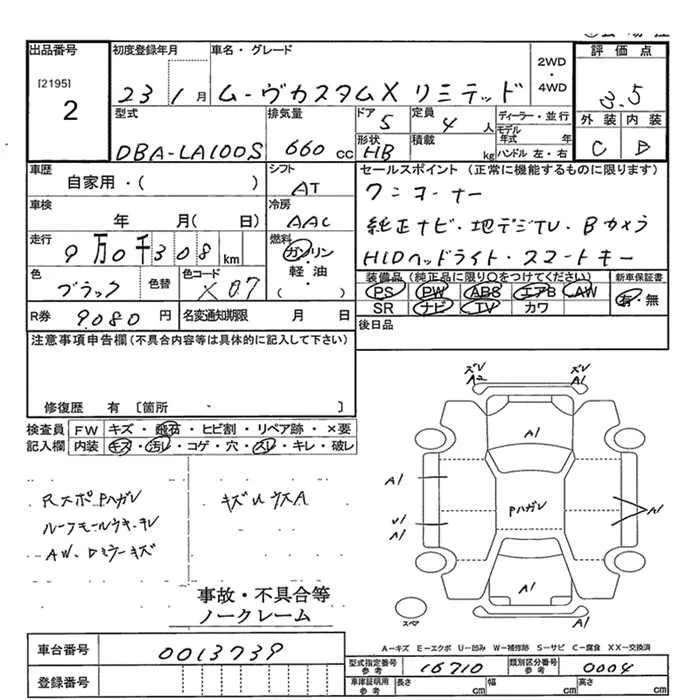 出品番号 初度登録年月 車名・グレード 評価点
[2195]
2
23 1月 ムーヴカスタムX リミテッド 2WD・4WD 3.5
型式 排気量 ドア 定員 ディーラー・並行 外装 内装
DBA-LA100S 660cc 5 4人 モデル年式 年 C B
形状 積載 ハンドル 左・右
HB kg
車歴 シフト セールスポイント (正常に機能するものに限ります)
自家用・( ) AT ワンオーナー
車検 冷房
年 月( 日) AAC 純正ナビ・地デジTV・Bカメラ
走行 燃料
9万0千308km ガソリン HIDヘッドライト・スマートキー
軽油・( )
色 色替 色コード 装備品 (純正品に限り○をつけてください) 新車保証書
ブラック X07 PS PW ABS エアB AW 有・無
SR ナビ TV カワ
R券 9,080円 名変通知期限 月 日 後日品
注意事項申告欄(不具合内容等は具体的に記入して下さい)
修復歴 有 〔箇所 〕
検査員 FW キズ・飛石・ヒビ割・リペア跡・×要
記入欄 内装 キズ・汚レ・コゲ・穴・スレ・キレ・破レ
RスポPハガレ キズUウスA
ルーフモールウキ・キレ
AW・Dミラーキズ
ズレ ズレ
A2 A1
A1
A1
Pハガレ
U1 A1
A1
A1 A1
スペア
事故・不具合等
ノークレーム
A=キズ E=エクボ U=凹み W=補修跡 S=サビ C=腐食 XX=交換済
車台番号 0013739
型式指定番号 参考 16710 類別区分番号 参考 0004
登録番号
車庫証明用 参考 長さ cm 幅 cm 高さ cm